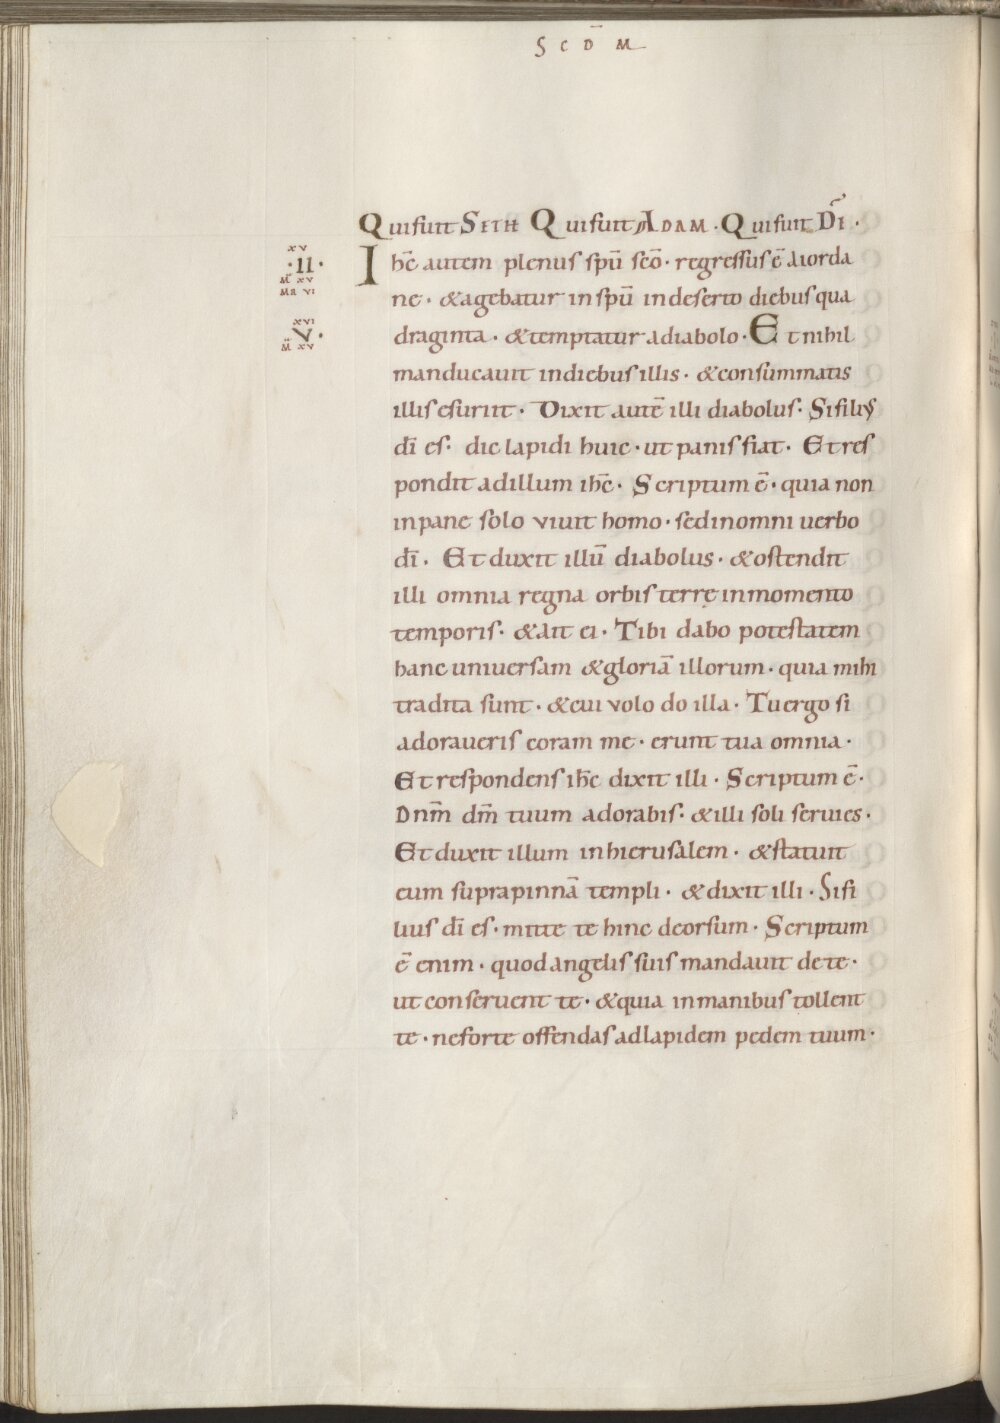 SCD̄M
Qui fuit SETH Qui fuit ADAM · Qui fuit DĪ ·
xv
·II·
M̄ xv
MR VI
Ihc̄ autem plenus spū scō · regressus ē a iorda
ne · & agebatur in spū in deserto diebus qua
xvi
V·
M̄ xv
draginta · & temptatur a diabolo · Et nihil
manducauit in diebus illis · & consummatis
illis esuriit · Dixit autē illi diabolus · Si filius
dī es · dic lapidi huic · ut panis fiat · Et res
pondit ad illum ihc̄ · Scriptum ē · quia non
in pane solo viuit homo · sed in omni uerbo
dī · Et duxit illū diabolus · & ostendit
illi omnia regna orbis terrę in momento
temporis · & ait ei · Tibi dabo potestatem
hanc uniuersam & gloriā illorum · quia mihi
tradita sunt · & cui volo do illa · Tu ergo si
adoraueris coram me · erunt tua omnia ·
Et respondens ihc̄ dixit illi · Scriptum ē ·
Dnm̄ dm̄ tuum adorabis · & illi soli seruies ·
Et duxit illum in hierusalem · & statuit
eum supra pinnā templi · & dixit illi · Si fi
lius dī es · mitte te hinc deorsum · Scriptum
ē enim · quod angelis suis mandauit de te ·
ut conseruent te · & quia in manibus tollent
te · ne forte offendas ad lapidem pedem tuum ·